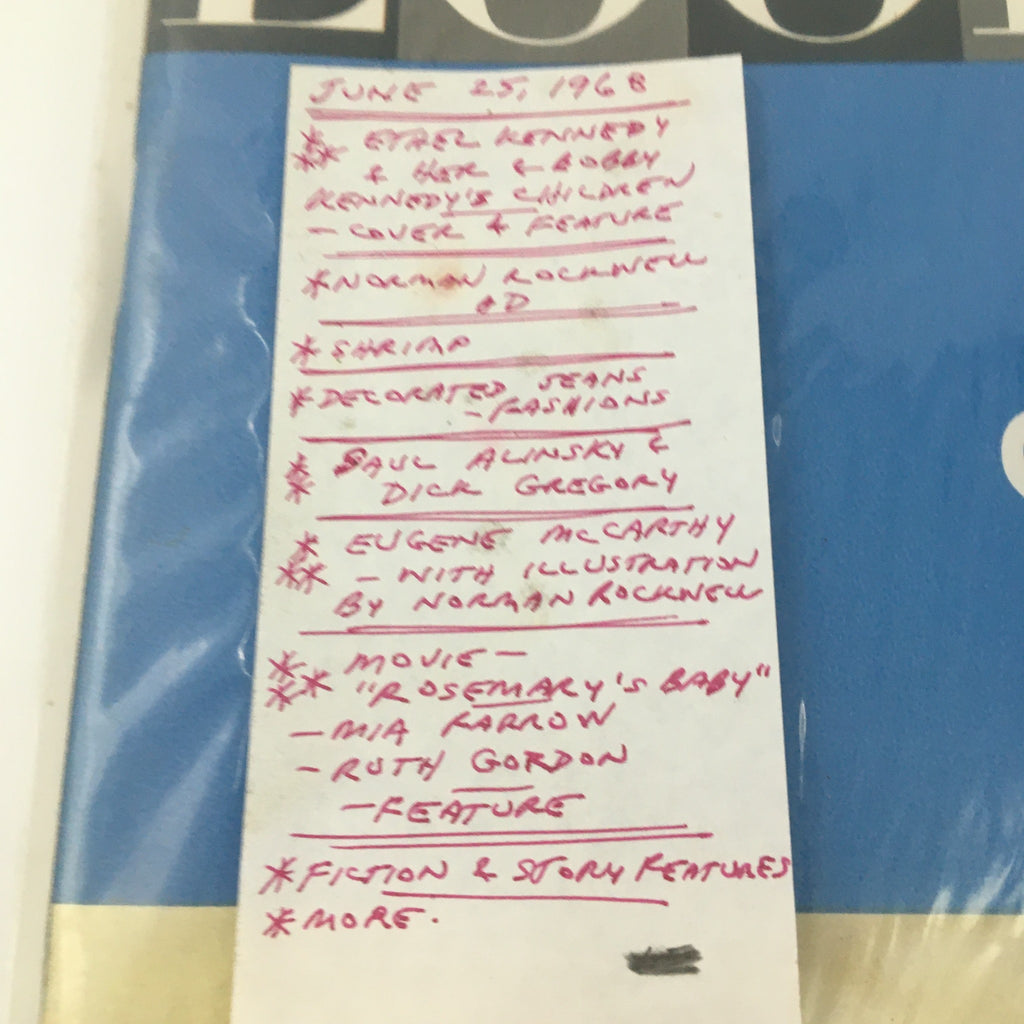 LOOK
JUNE 25, 1968
* ETHEL KENNEDY
** & HER & BOBBY
KENNEDY'S CHILDREN
- COVER & FEATURE
*NORMAN ROCKWELL
AD
*SHRIMP
*DECORATED JEANS
- FASHIONS
* SAUL ALINSKY &
* DICK GREGORY
* EUGENE McCARTHY
** - WITH ILLUSTRATION
BY NORMAN ROCKWELL
* MOVIE -
** "ROSEMARY'S BABY"
- MIA FARROW
- RUTH GORDON
- FEATURE
*FICTION & STORY FEATURES
*MORE.